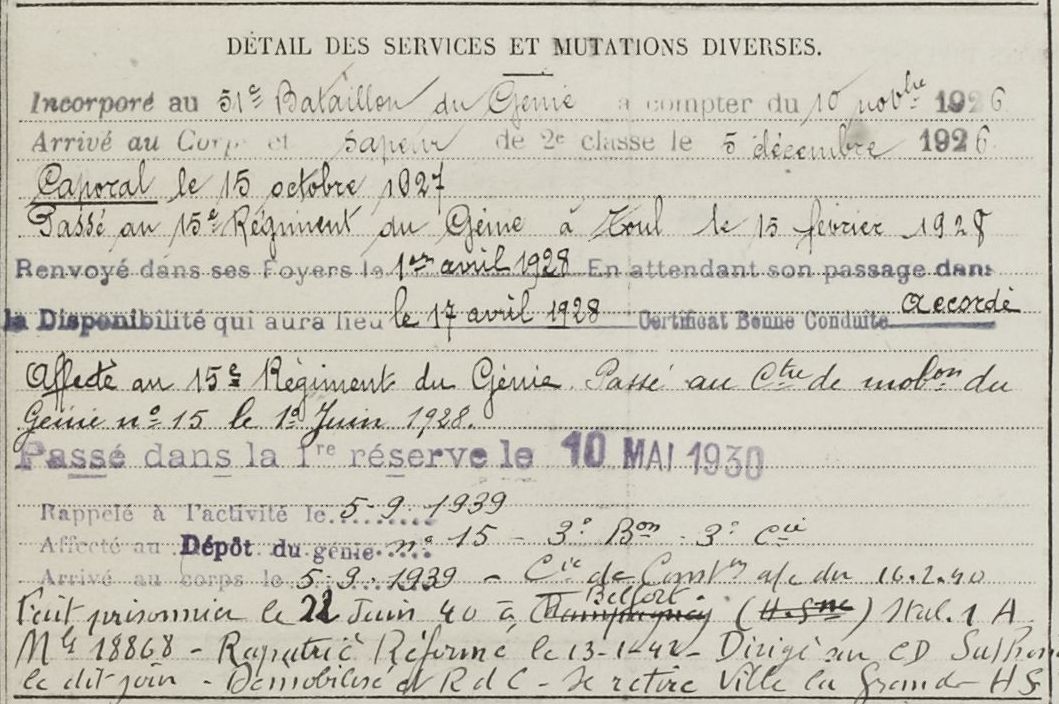 DÉTAIL DES SERVICES ET MUTATIONS DIVERSES.
Incorporé au 31e Bataillon du Génie à compter du 10 novbre 1926
Arrivé au Corps et sapeur de 2e classe le 5 décembre 1926
Caporal le 15 octobre 1927
Passé au 15e Régiment du Génie à Toul le 15 février 1928
Renvoyé dans ses Foyers le 1er avril 1928 En attendant son passage dans
la Disponibilité qui aura lieu le 17 avril 1928 Certificat Bonne Conduite Accordé
Affecté au 15e Régiment du Génie. Passé au Ctre de mobon du
Génie no 15 le 1e Juin 1928.
Passé dans la 1re réserve le 10 MAI 1930
Rappelé à l'activité le 5-9-1939
Affecté au Dépôt du génie no 15 - 3e Bon - 3e Cie
Arrivé au corps le 5-9-1939 - Cie de Constn a/c du 16.2.40
Belfort
Fait prisonnier le 22 Juin 40 à Champagney (H.Sne) Stal. 1 A
Mle 18868 - Rapatrié Réformé le 13-1-42 - Dirigé au CD
le dit jour - Démobilisé et R d C - Se retire Ville la Grand HS